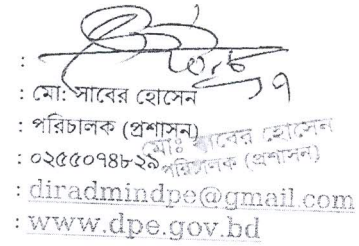 :
: মো: সাবের হোসেন
: পরিচালক (প্রশাসন)
মোঃ সাবের হোসেন
: ০২৫৫০৭৪৮২৯
পরিচালক (প্রশাসন)
: diradmindpe@gmail.com
: www.dpe.gov.bd